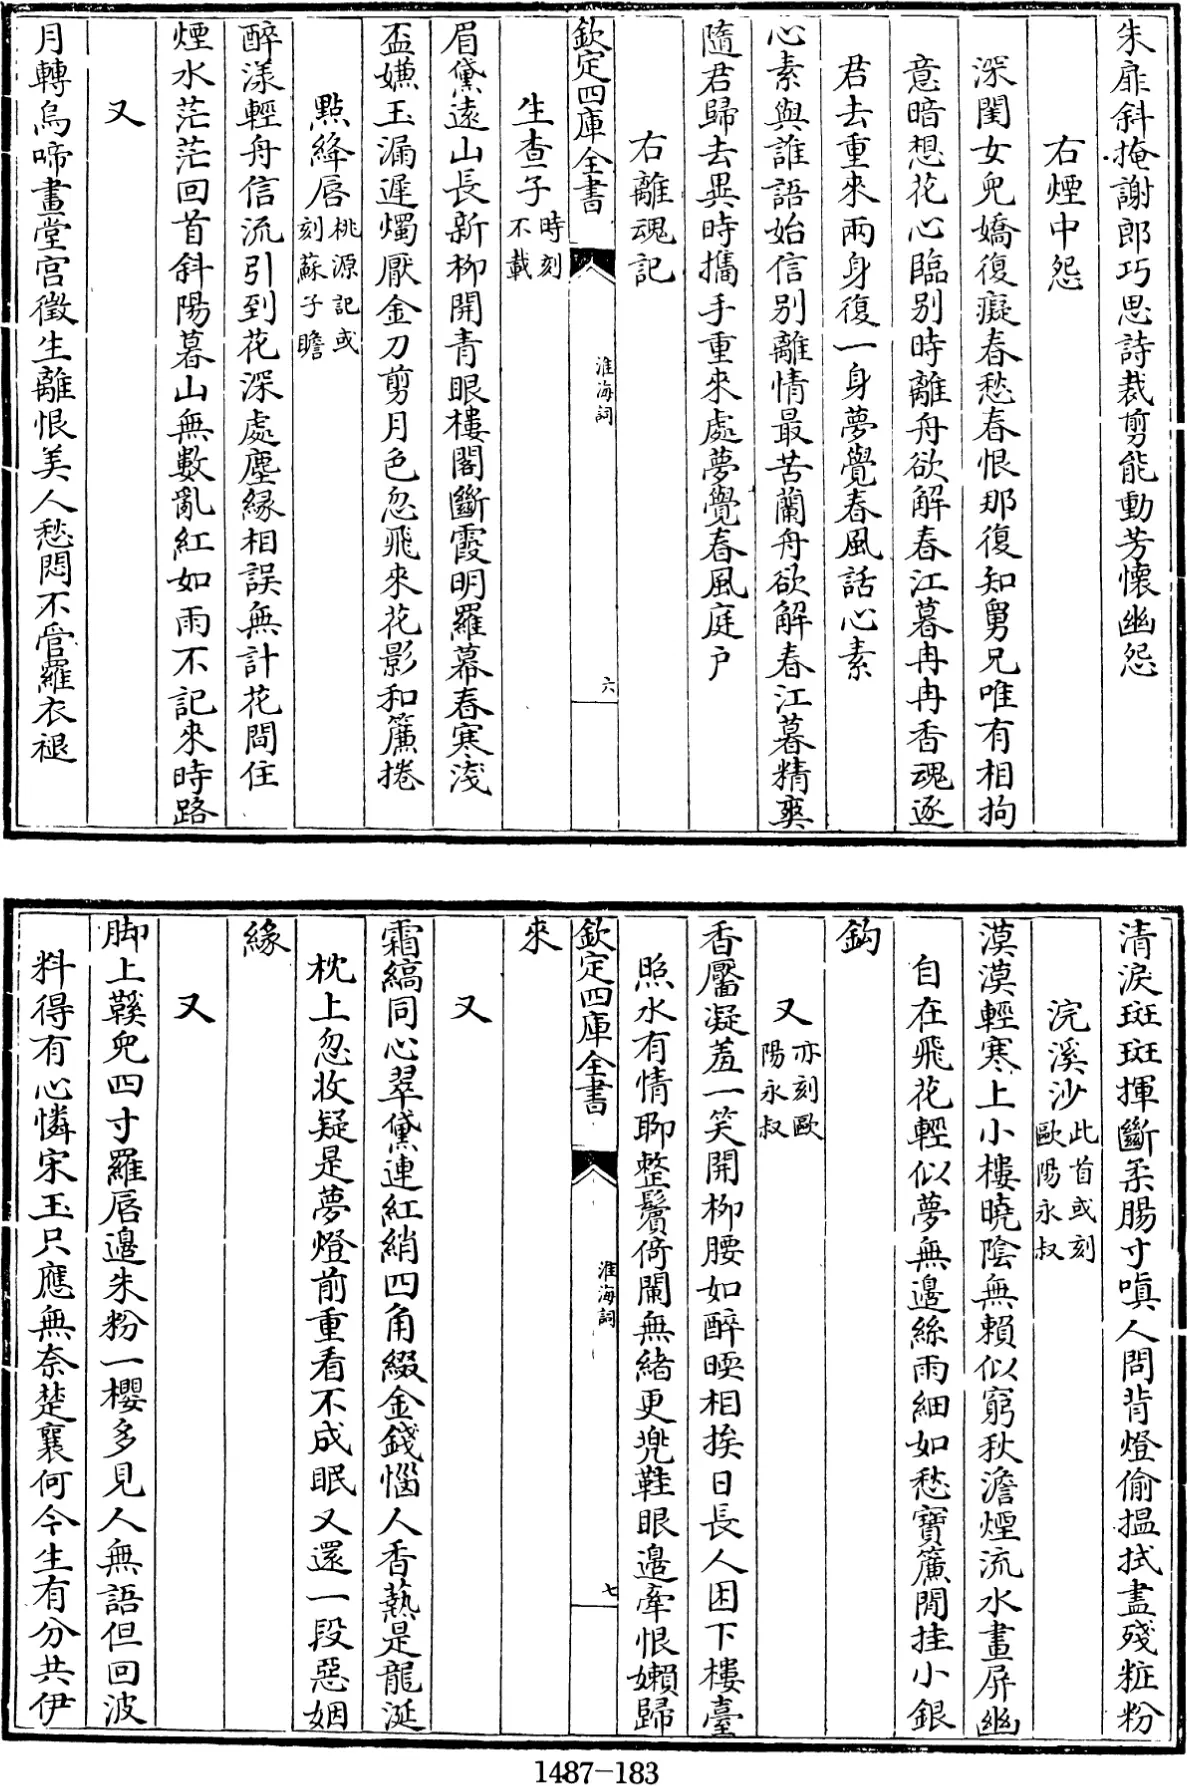 朱扉斜掩謝郎巧思詩裁剪能動芳懷幽怨
右煙中怨
深閨女兒嬌復癡春愁春恨那復知舅兄唯有相拘
意暗想花心臨别時離舟欲解春江暮冉冉香魂逐
君去重來兩身復一身夢覺春風話心素
心素與誰語始信别離情最苦蘭舟欲解春江暮精爽
隨君歸去異時攜手重來處夢覺春風庭户
右離魂記
欽定四庫全書
淮海詞
六
生查子時刻不載
眉黛遠山長新柳開青眼樓閣斷霞明羅幕春寒淺
盃嫌玉漏遲燭厭金刀剪月色忽飛來花影和簾捲
點絳唇桃源記或刻蘇子瞻
醉漾輕舟信流引到花深處塵緣相誤無計花間住
煙水茫茫回首斜陽暮山無數亂紅如雨不記來時路
又
月轉烏啼畫堂宫徵生離恨美人愁悶不管羅衣褪
清淚斑斑揮斷柔腸寸嗔人問背燈偷揾拭盡殘粧粉
浣溪沙此首或刻歐陽永叔
漠漠輕寒上小樓曉陰無賴似窮秋澹煙流水畫屏幽
自在飛花輕似夢無邊絲雨細如愁寶簾閒挂小銀
鈎
又亦刻歐陽永叔
香靨凝羞一笑開柳腰如醉暝相挨日長人困下樓臺
照水有情聊整鬢倚闌無緒更兠鞋眼邊牽恨嬾歸
欽定四庫全書
淮海詞
七
來
又
霜縞同心翠黛連紅綃四角綴金錢惱人香爇是龍涎
枕上忽收疑是夢燈前重看不成眠又還一段惡姻
緣
又
脚上鞵兒四寸羅唇邊朱粉一櫻多見人無語但回波
料得有心憐宋玉只應無奈楚襄何今生有分共伊
1487-183